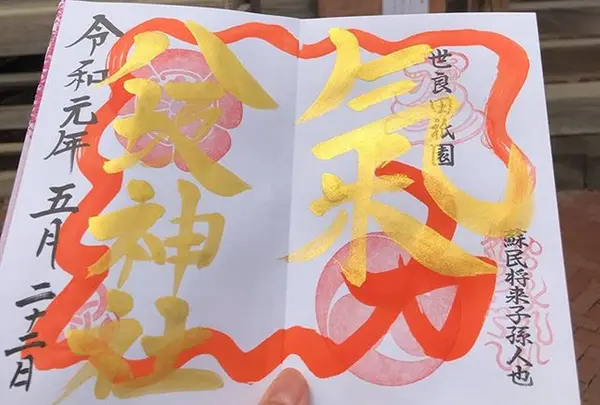 蘇民将来子孫人也
世良田祇園
氣
八坂神社
令和元年五月二十二日